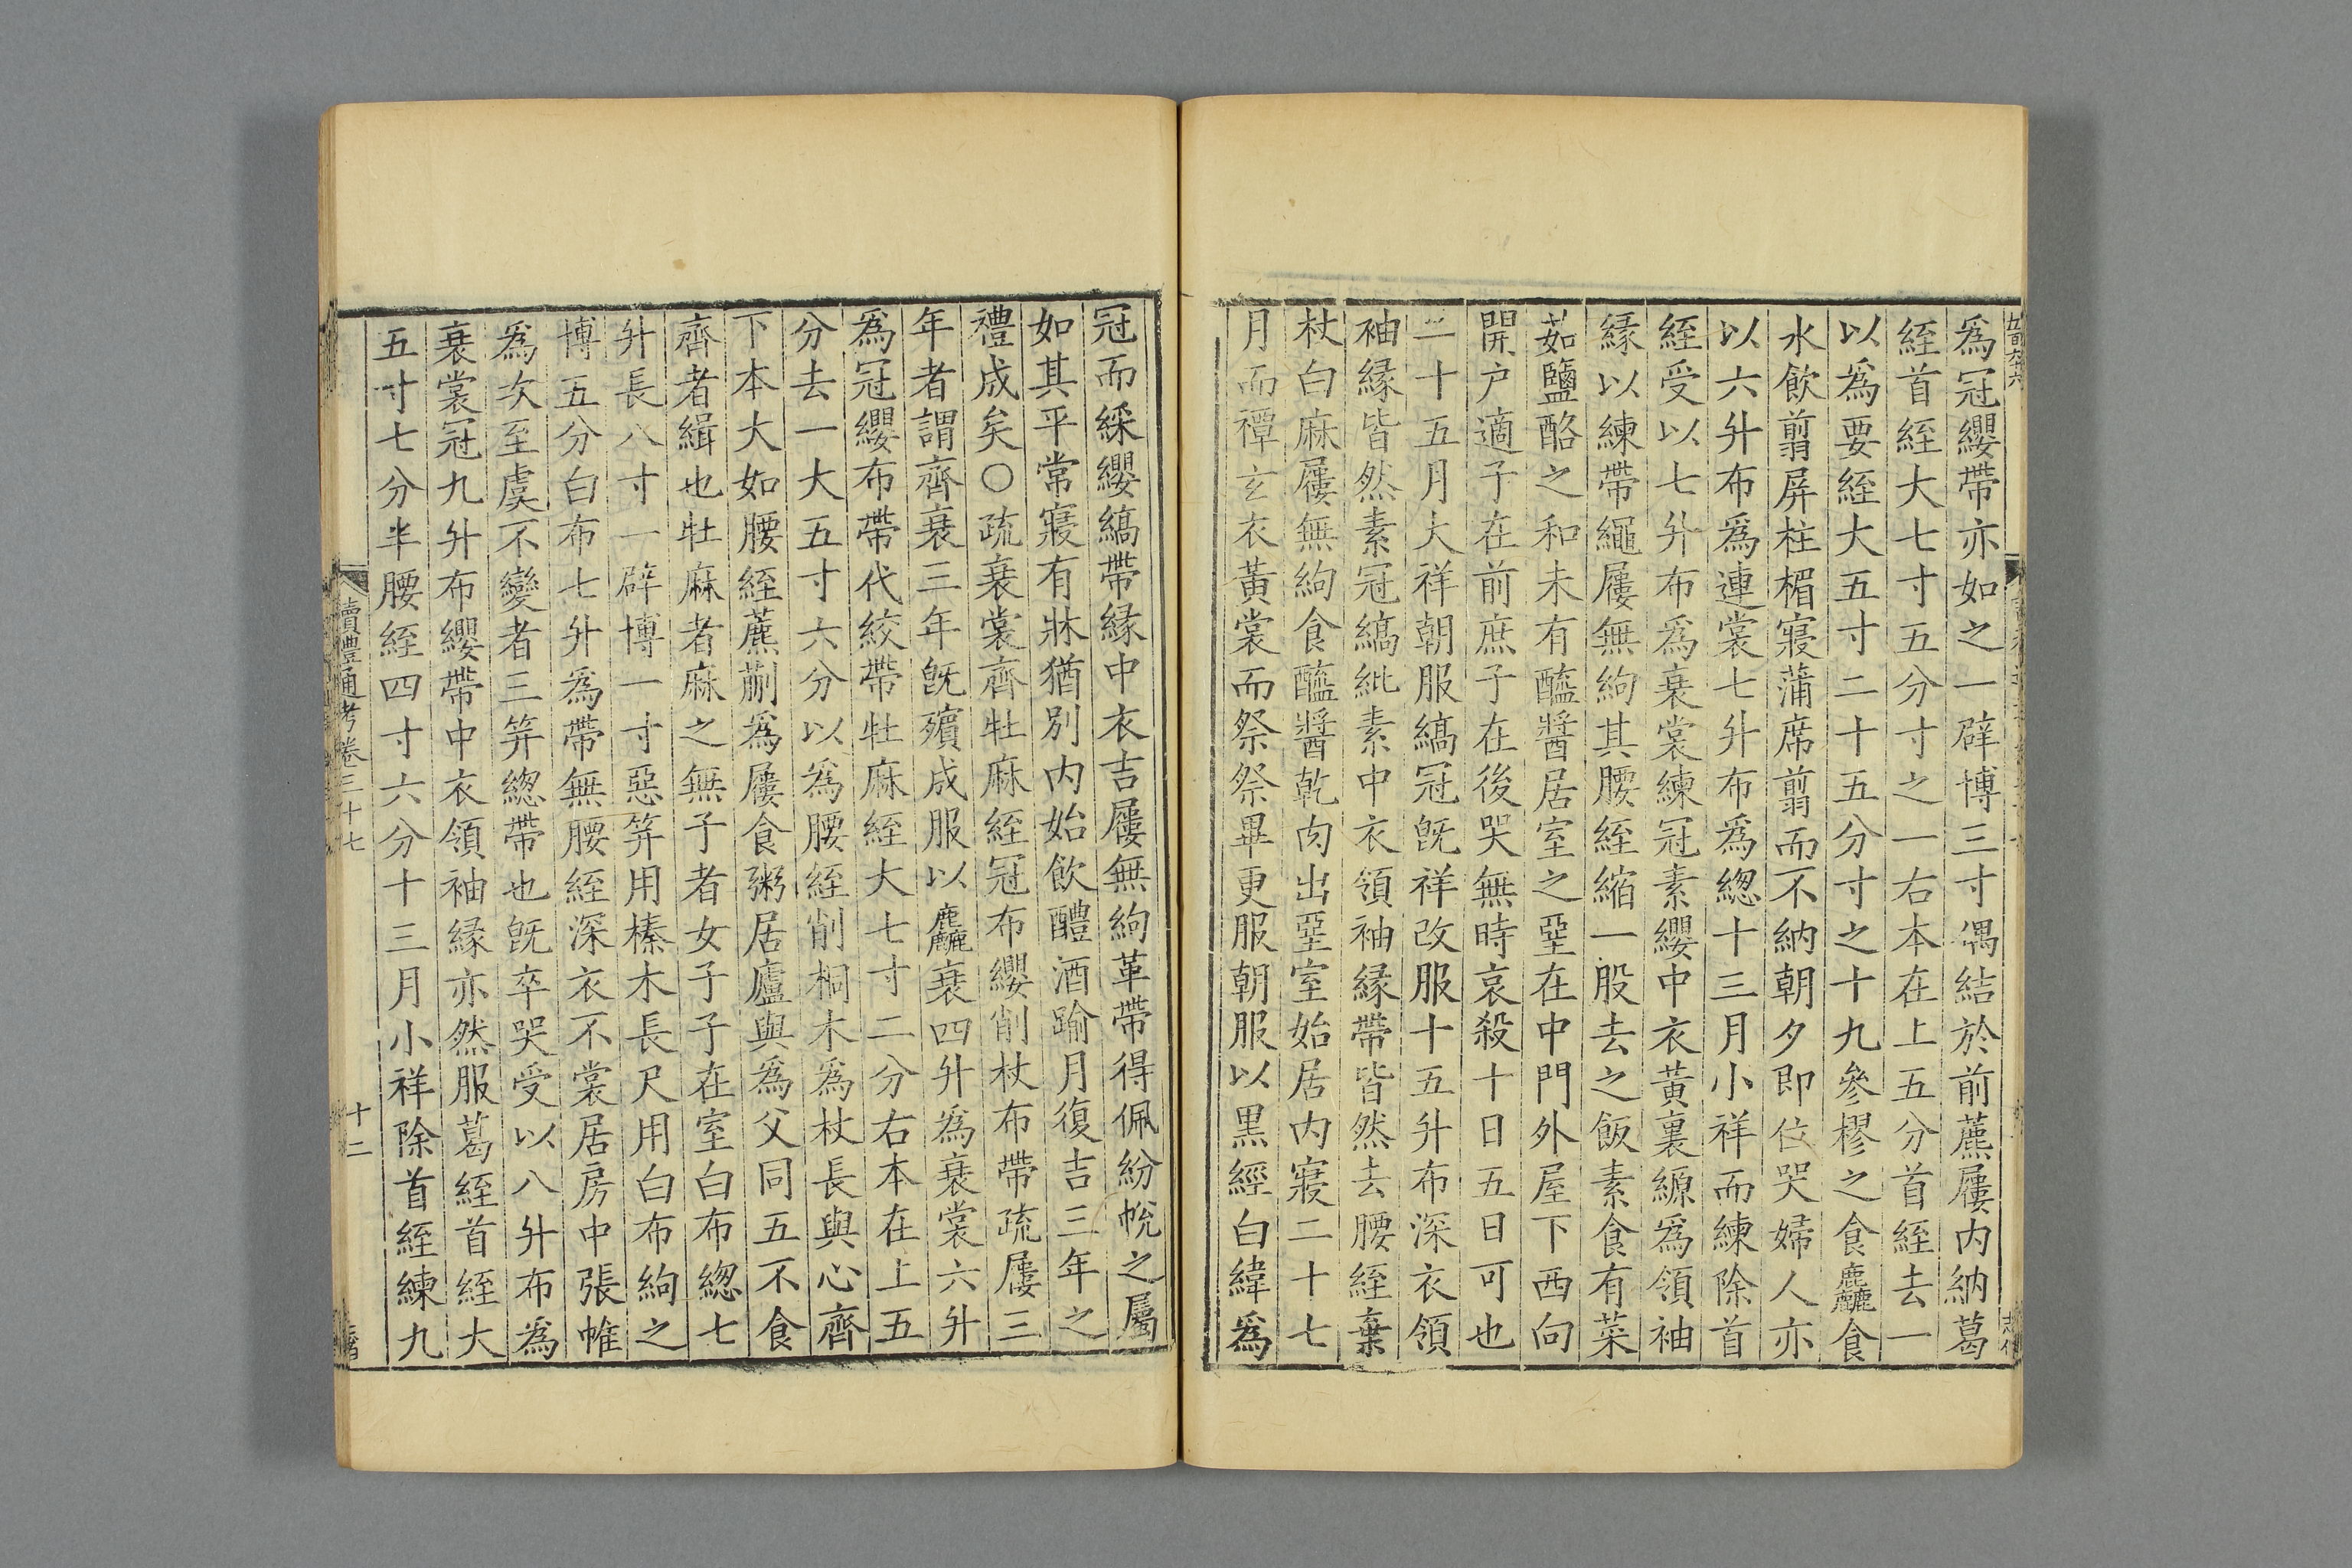 爲冠纓帶亦如之一辟博三寸偶結於前藨屨内納葛
絰首絰大七寸五分寸之一右本在上五分首絰去一
以爲要絰大五寸二十五分寸之十九參樛之食麤食
水飲翦屏柱楣寢蒲席翦而不納朝夕即位哭婦人亦
以六升布爲連裳七升布爲緫十三月小祥而練除首
絰受以七升布爲衰裳練冠素纓中衣黄裏縓爲領袖
縁以練帶繩屨無絇其腰絰縮一股去之飯素食有菜
茹鹽酪之和未有醯醬居室之堊在中門外屋下西向
開户適子在前庶子在後哭無時哀殺十日五日可也
二十五月大祥朝服縞冠旣祥改服十五升布深衣領
袖縁皆然素冠縞紕素中衣領袖縁帶皆然去腰絰棄
杖白麻屨無絇食醯醬乾肉出堊室始居内寢二十七
月而禫玄衣黃裳而祭祭畢更服朝服以黑經白緯爲
冠而綵纓縞帶縁中衣吉屨無絇革帶得佩紛帨之屬
如其平常寢有牀猶別内始飲醴酒踰月復吉三年之
禮成矣〇疏衰裳齊牡麻絰冠布纓削杖布帶疏屨三
年者謂齊衰三年旣殯成服以麤衰四升爲衰裳六升
爲冠纓布帶代絞帶牡麻絰大七寸二分右本在上五
分去一大五寸六分以爲腰絰削桐木爲杖長與心齊
下本大如腰絰藨蒯爲屨食粥居廬與爲父同五不食
齊者緝也牡麻者麻之無子者女子子在室白布緫七
升長八寸一辟博一寸惡笄用榛木長尺用白布絇之
博五分白布七升爲帶無腰絰深衣不裳居房中張帷
爲次至虞不變者三笄緫帶也旣卒哭受以八升布爲
衰裳冠九升布纓帶中衣領袖縁亦然服葛絰首絰大
五寸七分半腰絰四寸六分十三月小祥除首絰練九
讀禮通考卷三十七
十二